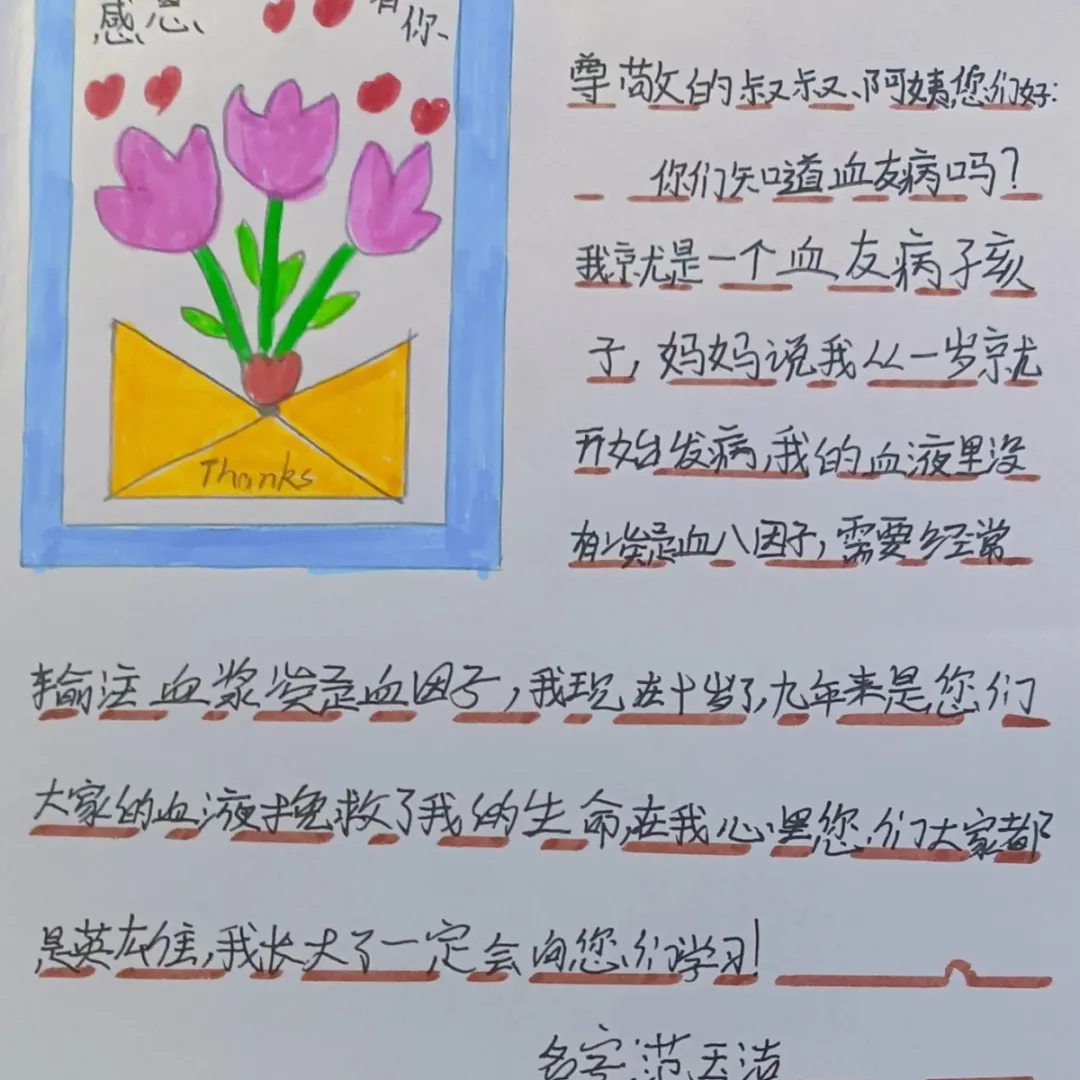 感恩 有你
Thanks
尊敬的叔叔、阿姨您们好:
你们知道血友病吗?
我就是一个血友病子孩
子,妈妈说我从一岁就
开始发病,我的血液里没
有凝血八因子,需要经常
输注血浆凝血因子,我现在十岁了,九年来是您们
大家的血液挽救了我的生命,在我心里您们大家都
是英雄,我长大了一定会向您们学习!
名字:范玉洁